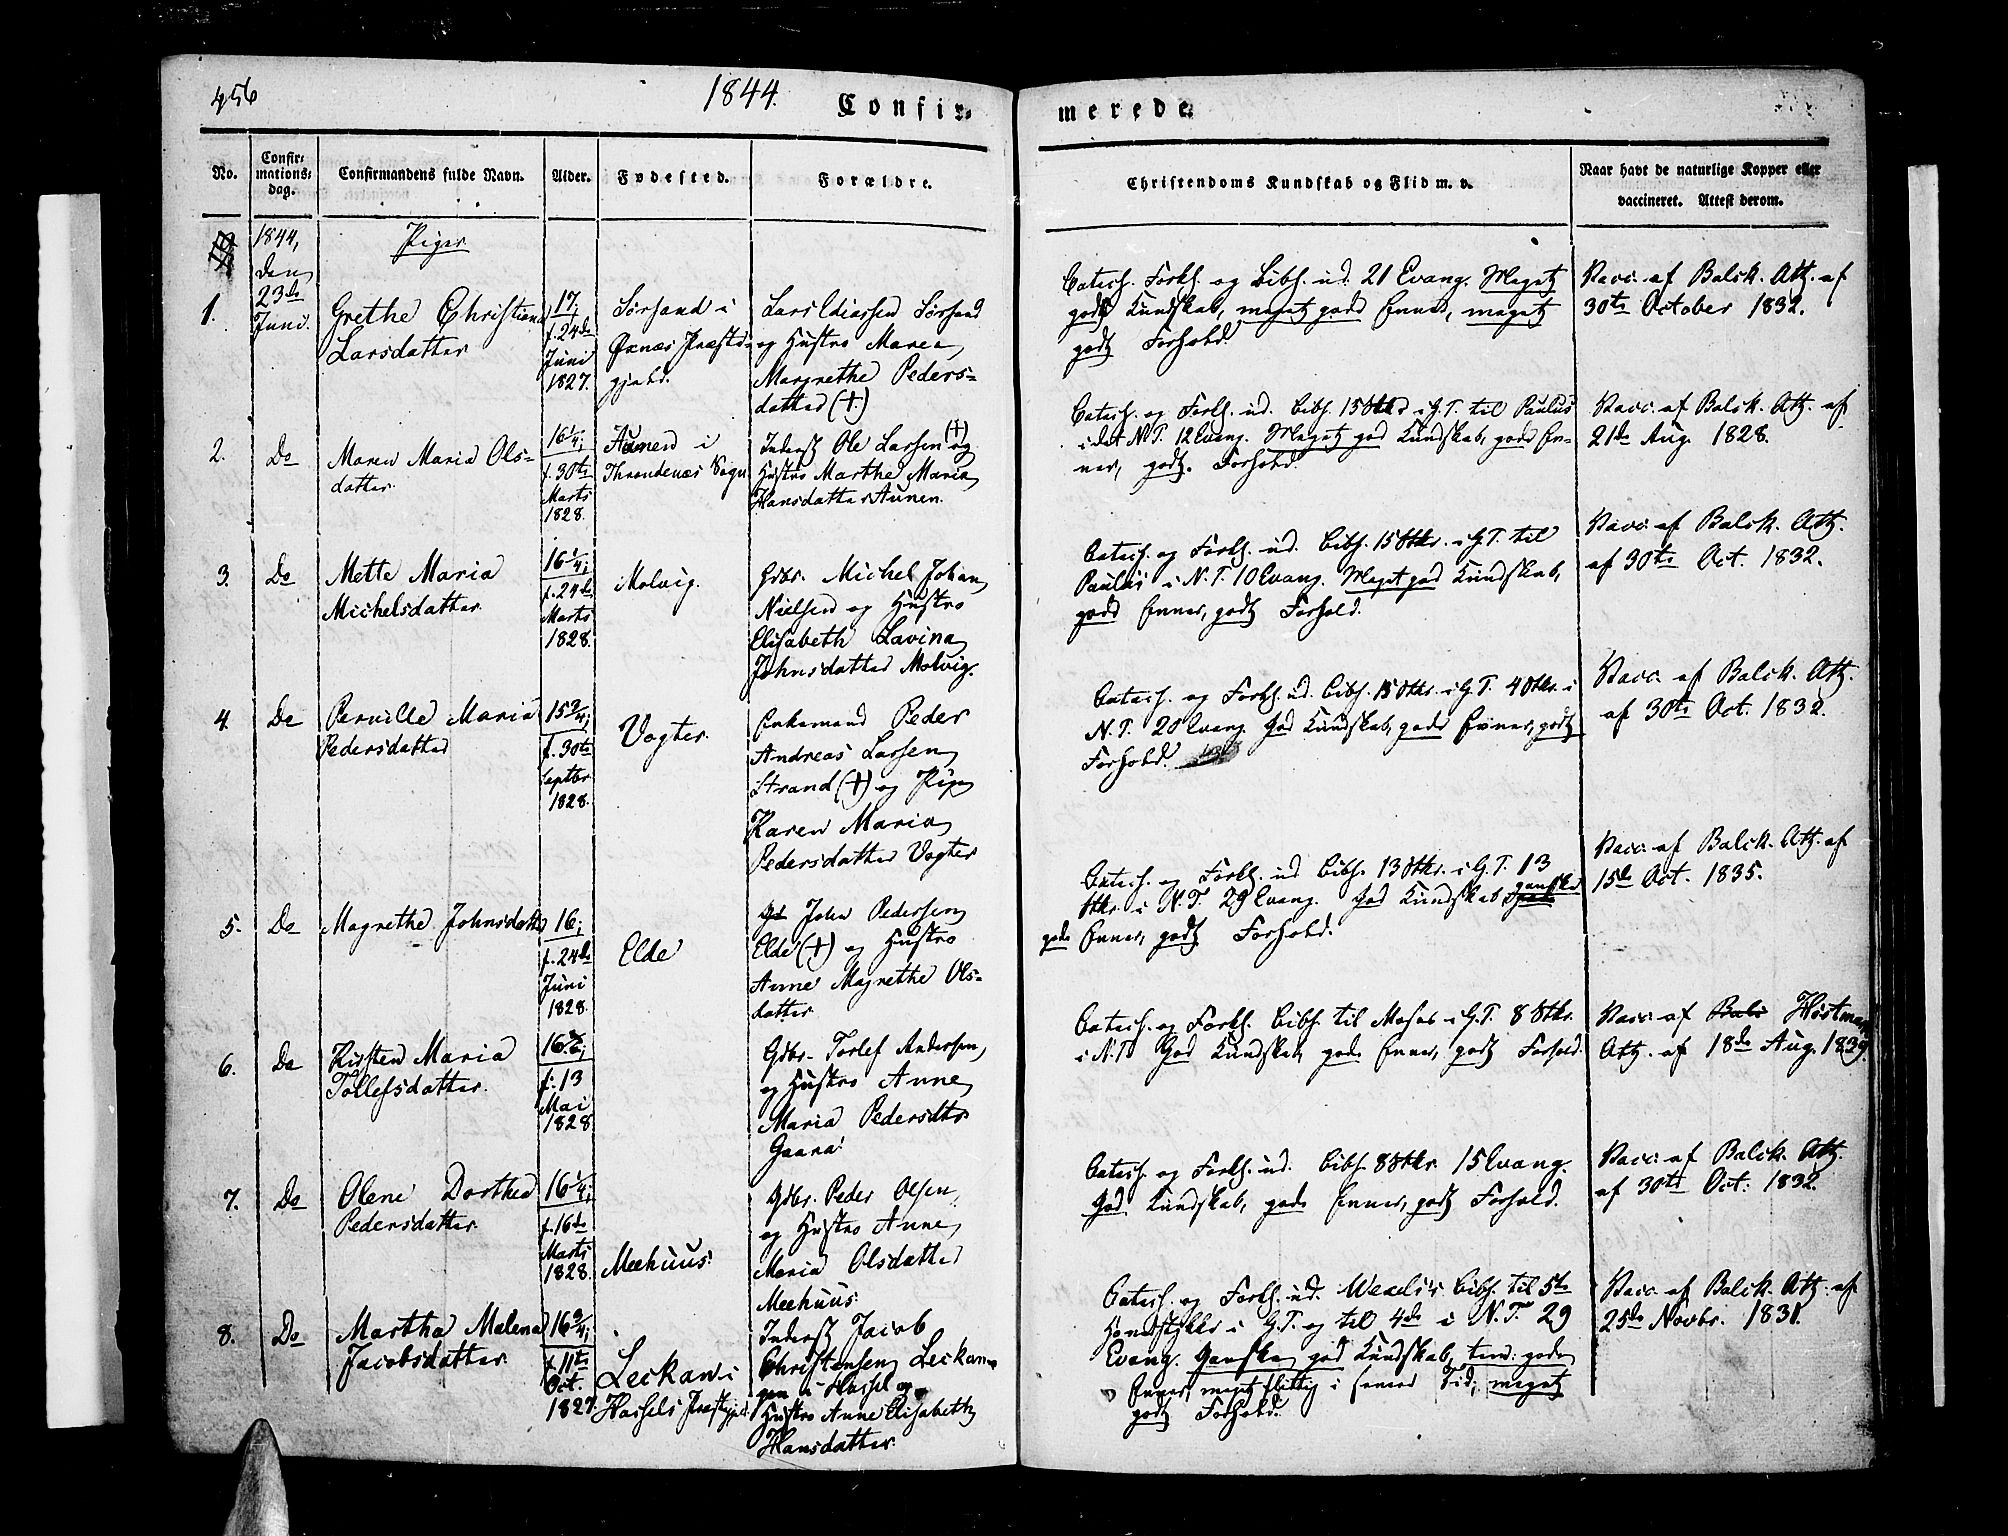 456
1844.
Confir-
merede.
No.
Confir-
mations-
dag.
Confirmandens fulde Navn.
Alder.
Fødested.
Forældre.
Christendoms Kundskab og Flid m. v.
Naar havt de naturlige Kopper eller
vaccineret. Attest derom.
1844,
den
23de
Juni.
Piger
1.
Grethe Christiana
Larsdatter
17,
f. 24de
Juni
1827.
Sørsand i
Øxnæs Præste-
gjeld.
Lars Sørsand
og Hustro Maren
Margrethe Peders-
datter (+)
Catech. Forkl. og Bibh. ud. 21 Evang. Meget
god Kundskab, meget gode Evner, meget
godt Forhold.
Vacc. af Balck. Att. af
30te October 1832.
2.
Do
Maren Maria Ols-
datter
16 1/4,
f. 30te
Marts
1828.
Aunen i
Throndenæs Sogn
Inderst Ole Larsen (+) og
Hustro Marthe Maria
Hansdatter Aunen.
Catech. og Forkl. ud. Bibh. 15 Stkr i G.T. til Paulus
i det N.T. 12 Evang. Meget god Kundskab, gode Ev-
ner, godt Forhold.
Vacc. af Balck. Att. af
21de Aug. 1828.
3.
Do
Mette Maria
Michelsdatter
16 1/4,
f. 24de
Marts
1828.
Molvig.
Gdbr. Michel Johan
Nielsen og Hustro
Elisabeth Lavina
Johnsdatter Molvig.
Catech. og Forkl. ud. Bibh. 15 Stkr. i G.T. til
Paulus i N.T. 10 Evang. Meget god Kundskab,
gode Evner, godt Forhold.
Vacc. af Balck. Att.
af 30te Oct. 1832.
4.
Do
Pernille Maria
Pedersdatter
15 3/4,
f. 30te
Septbr
1828.
Vogter.
Enkemand Peder
Andreas Larsen
Strand (+) og Pige
Karen Maria
Pedersdatter Vogter
Catech. og Forkl. ud. Bibh. 15 Stkr. i G.T. 4 Stkr. i
N.T. 20 Evang. God Kundskab, gode Evner, godt
Forhold.
Vacc. af Balck. Att.
af 30te Oct. 1832.
5.
Do
Magrethe Johnsdatter
16,
f. 24de
Juni
1828.
Elde
John Pedersen
Elde (+) og Hustro
Anne Magrethe Ols-
datter
Catech. og Forkl. ud Bibh. 13 Stkr. i G.T. 13
Stkr. i N.T. 29 Evang. God Kundskab ganske
gode Evner, godt Forhold.
Vacc. af Balck. Att. af
15de Oct. 1835.
6.
Do
Kirsten Maria
Tollefsdatter.
16
f. 13
Mai
1828
Gdbr. Torlef Andersen
og Hustro Anne
Maria Pedersdtr
Gaara
Catech. og Forkl. Bibh. til Moses i G.T. 8 Stkr.
i N.T. God Kundskab, gode Evner, godt Forhold.
Vacc. af Høstmark
Att. af 18de Aug. 1839.
7.
Do
Olene Dorthea
Pedersdatter
16 1/4,
f. 16de
Marts
1828.
Meehuus.
Gdbr. Peder Olsen
og Hustro Anne
Maria Olsdatter
Meehuus.
Catech. og Forkl. ud. Bibh. 8 Stkr. 15 Evang.
God Kundskab, gode Evner, godt Forhold.
Vacc. af Balck. Att.
af 30te Oct. 1832.
8.
Do
Martha Malena
Jacobsdatter
16 3/4,
f. 11te
Oct.
1827.
Leckan i
Hassels Præstegjeld
Inderst Jacob
Christensen Leckan-
gen i Hassel og
Hustro Anne Elisabeth
Hansdatter.
Catech. og Forkl. ud. Wexels's Bibh. til 5te
Hovedstykke i G.T. og til 4de i N.T. 29
Evang. Ganske god Kundskab, gode
Evner, meget flittig i senere Tid, meget
godt Forhold.
Vacc. af Balck. Att. af
25de Novbr. 1831.